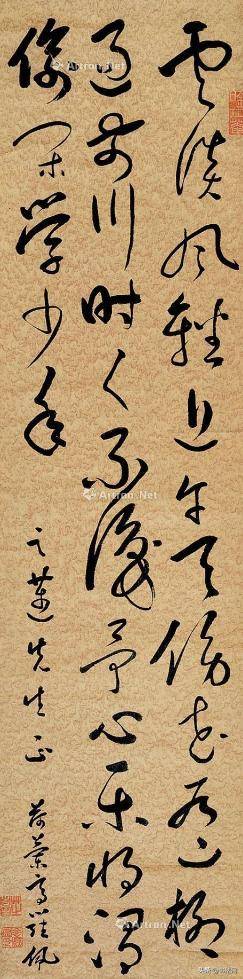 雲淡風輕近午天傍花隨柳
過前川時人不識予心樂將謂
偷閑學少年
之蓮先生正
Artron.Net
Artron.Net
Artron.Net